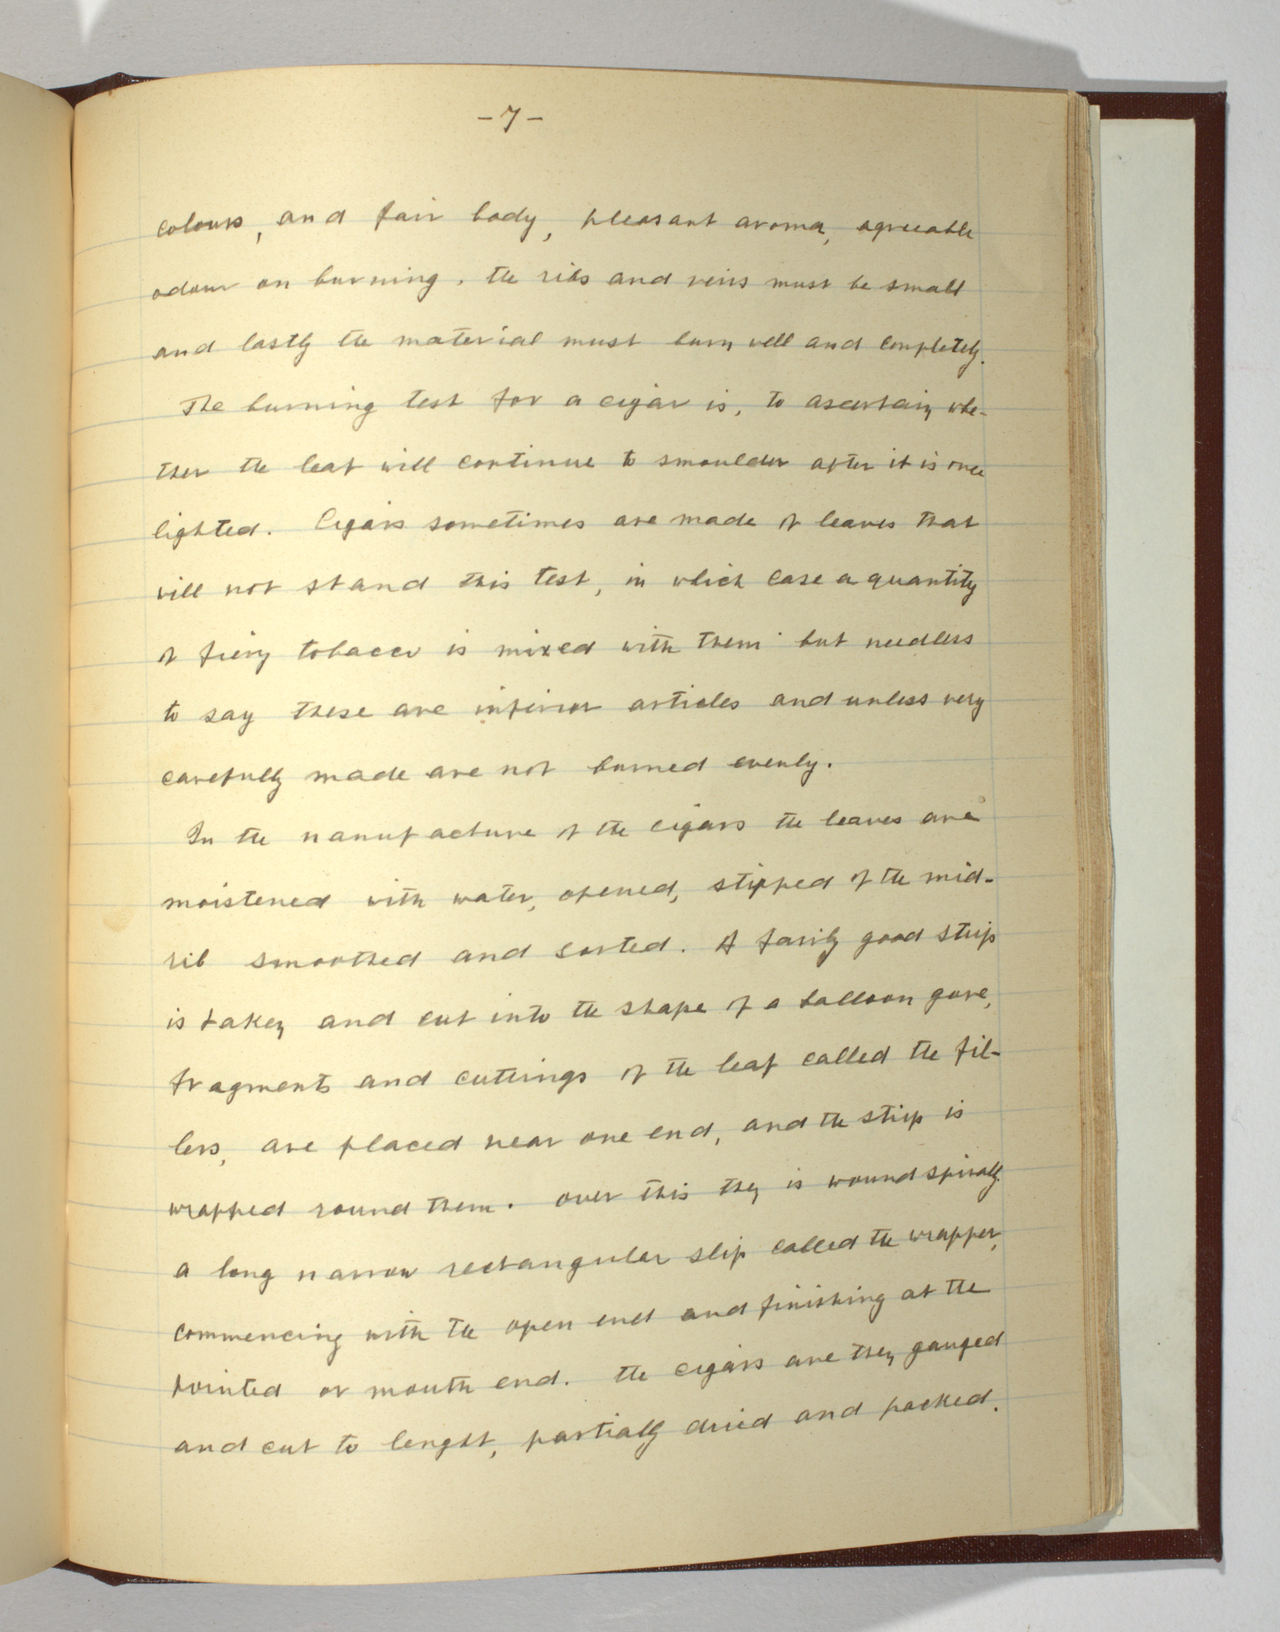 -7-
colours, and fair body, pleasant aroma, agreeable
odour on burning. The ribs and veins must be small
and lastly the material must burn well and completely.
The burning test for a cigar is, to ascertain whe-
ther the leaf will continue to smoulder after it is once
lighted. Cigars sometimes are made of leaves that
will not stand this test, in which case a quantity
of fiery tobacco is mixed with them but needless
to say these are inferior articles and unless very
carefully made are not burned evenly.
In the manufacture of the cigars the leaves are
moistened with water, opened, stipped of the mid-
rib smoothed and sorted. A fairly good strip
is taken and cut into the shape of a balloon gore,
fragments and cuttings of the leaf called the fil-
lers, are placed near one end, and the strip is
wrapped round them. Over this then is wound spirally
a long narrow rectangular slip called the wrapper,
commencing with the open end and finishing at the
pointed or mouth end. The cigars are then gauged
and cut to lenght, partially dried and packed.